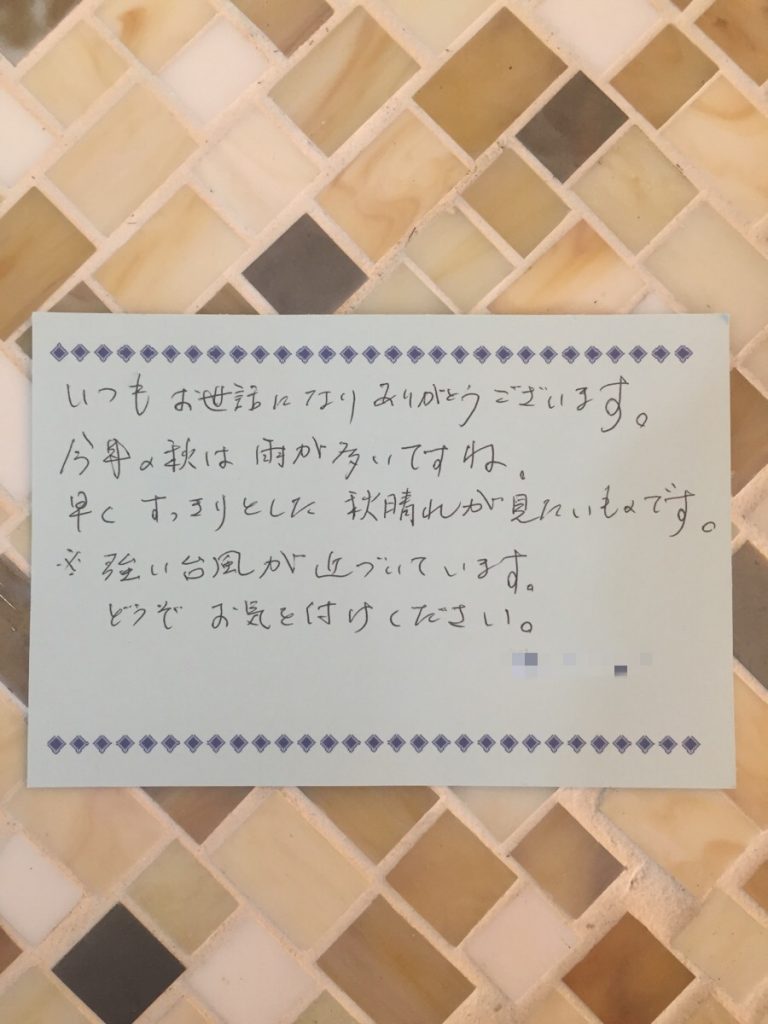 いつも お世話になり ありがとうございます。
今年の秋は 雨が多いですね。
早く すっきりとした 秋晴れが見たいものです。
※ 強い台風が近づいています。
どうぞ お気を付けください。